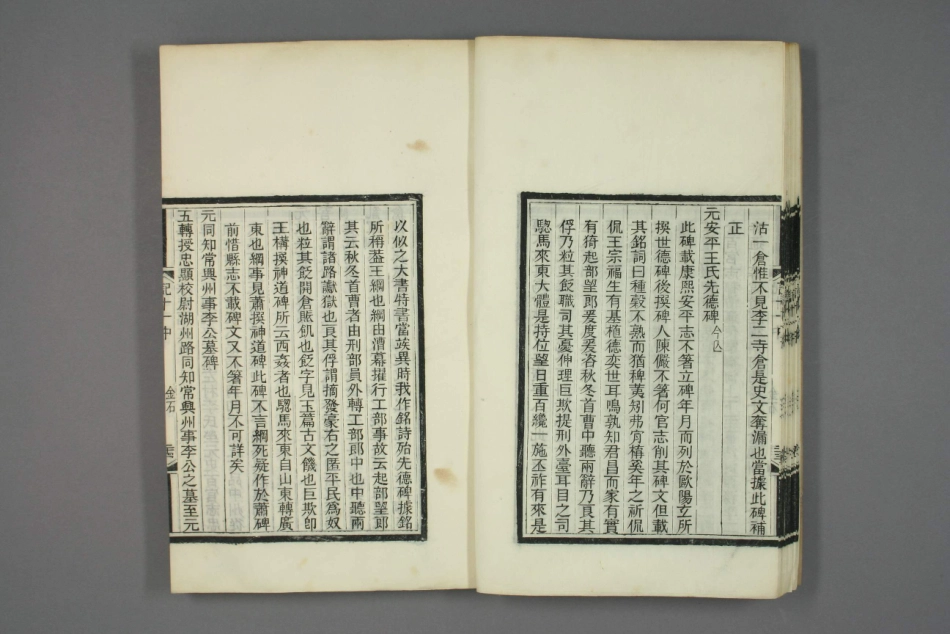 沽一倉惟不見李二寺倉是史文奪漏也當據此碑補
正
元安平王氏先德碑 今込
此碑載康熙安平志不箸立碑年月而列於歐陽立所
撰世德碑後撰碑人陳儼不箸何官志削其碑文但載
其銘詞曰種穀不熟而猶稗荑矧弗穷椿奚年之祈侃
侃王宗福生有基植德奕世耳鳴孰知君昌而家有實
有猗起部望郎爰度爰咨秋冬首曹中聽兩辭乃頁其
俘乃粒其飢職司其憂伸理巨欺提刑外臺耳目之司
驄馬來東大體是持位望日重百纔一施丕祚有來是
以似之大書特書當竢異時我作銘詩殆先德碑據銘
所稱葢王綱也綱由漕幕擢行工部事故云起部望郎
其云秋冬首曹者由刑部員外轉工部郎中也中聽兩
辭謂諸路讞獄也頁其俘謂摘發豪右之匿平民爲奴
也粒其飢開倉賑飢也飢字見玉篇古文饑也巨欺即
王構撰神道碑所云西姦者也驄馬來東自山東轉廣
東也綱事見蕭撰神道碑此碑不言綱死疑作於蕭碑
前惜縣志不載碑文又不箸年月不可詳矣
元同知常興州事李公墓碑
五轉授忠顯校尉湖州路同知常興州事李公之墓至元
金石